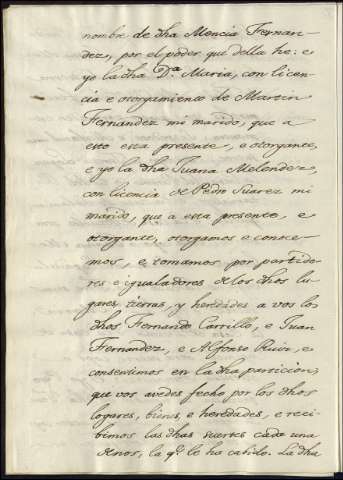 nombre de dha Mencia Fernan-
dez, por el poder que della he: e
yo la dha D.a Maria, con licen-
cia e otorgamiento de Martin
Fernandez mi marido, que a
esto esta presente, e otorgante,
e yo la dha Juana Melendez,
con licencia de Pedro Suarez mi
marido, que a esta presente, e
otorgante, otorgamos e conoce-
mos, e tomamos por partido-
res e igualadores de los dhos lu-
gares tierras, y heredades a vos los
dhos Fernando Carrillo, e Juan
Fernandez, e Alfonso Ruiz, e
consentimos en la dha particion,
que vos avedes fecho por los dhos
logares, bienes, e heredades, e reci-
bimos las dhas suertes cada una
denos, la q.e le ha cabido. La dha